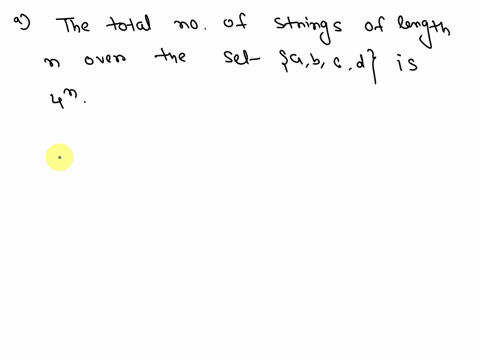 a) The total no. of strings of length
n over the set {a,b,c,d} is
4ⁿ.